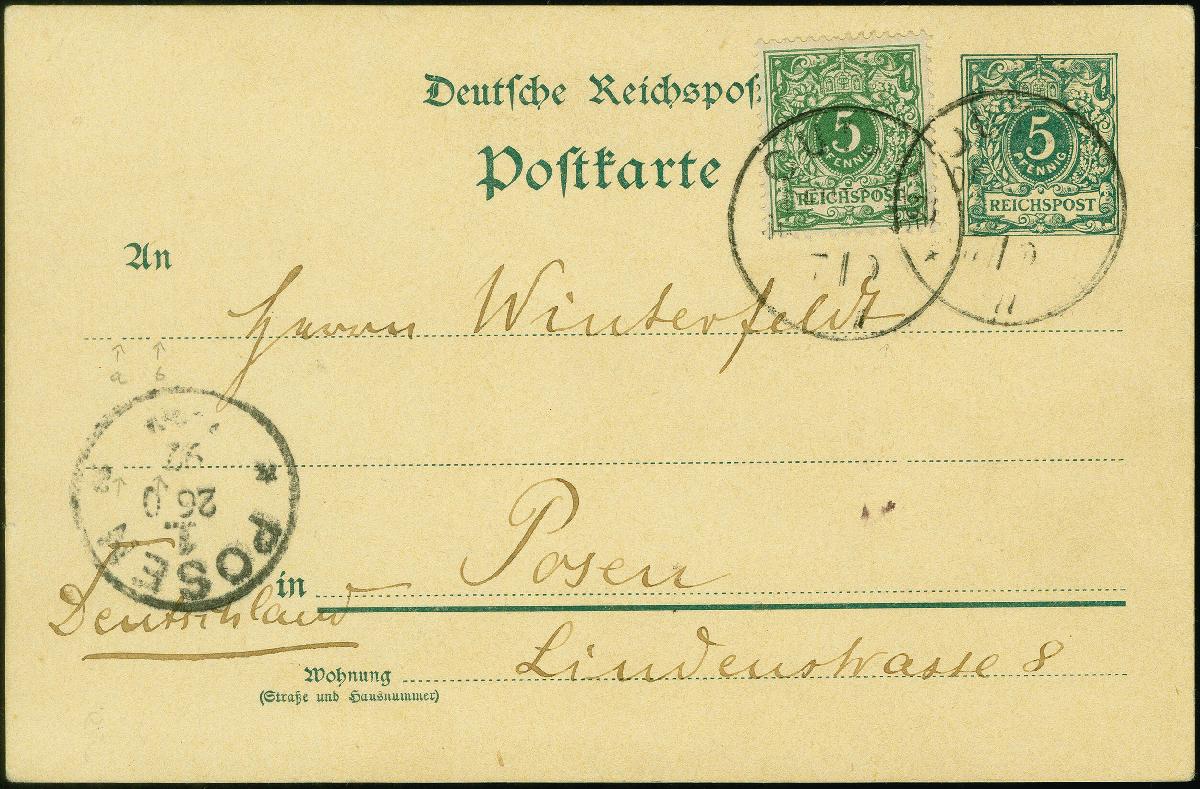 Deutsche Reichspos
Postkarte
5
PFENNIG
REICHSPOST
5
PFENNIG
REICHSPOST
An
Herrn Winterfeldt
a b
* POSEN
1
26
92
in Posen
Deutschland
Lindenstrasse 8
Wohnung
(Straße und Hausnummer)